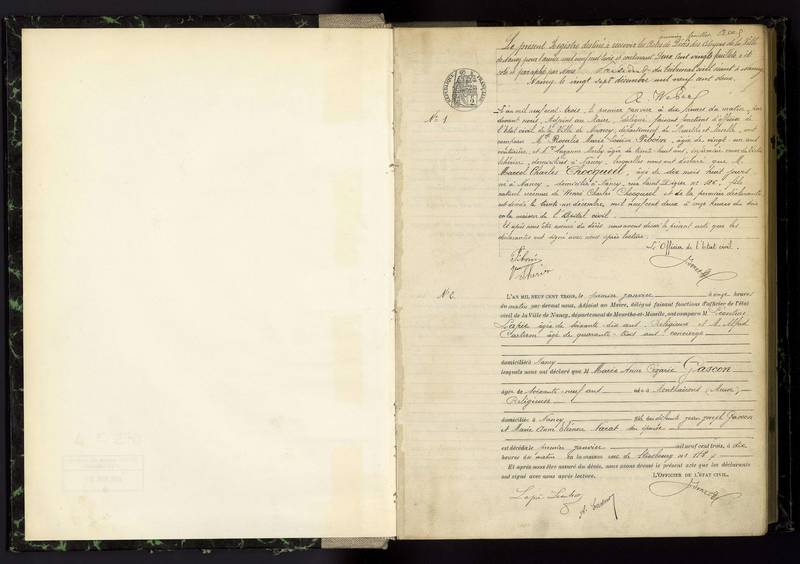 premier feuillet
Le présent Registre destiné à recevoir les Actes de Décès des Citoyens de la Ville
de Nancy pour l'année mil neuf cent trois, et contenant deux cent vingt feuillets a été
coté et paraphé par nous Président du tribunal civil séant à Nancy
Nancy le vingt sept décembre mil neuf cent deux.
RÉPUBLIQUE FRANÇAISE
A. Weber
N° 1.
L'an mil neuf cent trois, le premier janvier à dix heures du matin, par
devant nous, Adjoint au Maire, délégué faisant fonctions d'officier de
l'état civil de la Ville de Nancy, département de Meurthe et Moselle, ont
comparu Mlle Rosalie Marie Louise Piboin, âgée de vingt un ans
couturière et âgée de trente huit ans,
domiciliées à Nancy, lesquelles nous ont déclaré que M.
Marcel Charles Chocqueel, âgé de dix mois huit jours
né à Nancy, domicilié à Nancy, rue Saint Dizier n° 126, fils
naturel reconnu de Henri Charles Chocqueel et de la première déclarante
est décédé le trente un décembre, mil neuf cent deux à onze heures du soir
en la maison de l'Hôpital civil.
Et après nous être assuré du décès, nous avons dressé le présent acte que les
déclarantes ont signé avec nous après lecture.
L'Officier de l'état civil.
Piboin
N° 2.
L'AN MIL NEUF CENT TROIS, le premier janvier à onze heures
du matin par-devant nous, Adjoint au Maire, délégué faisant fonctions d'officier de l'état
civil de la Ville de Nancy, département de Meurthe-et-Moselle, ont comparu M. Léontine
Lapié âgée de soixante-dix ans, Religieuse et M. Alfred
âgé de quarante-trois ans concierge
domiciliés à Nancy
lesquels nous ont déclaré que M Marie Anne Césarie Gascon
âgée de soixante-neuf ans née à Monthairons (Meuse)
Religieuse
domiciliée à Nancy fille des défunts Jean Joseph Gascon
et Marie Anne son épouse
est décédée le premier janvier mil neuf cent trois, à dix
heures du matin en la maison rue de Strasbourg n° 168
Et après nous être assuré du décès, nous avons dressé le présent acte que les déclarants
ont signé avec nous après lecture.
L'OFFICIER DE L'ÉTAT CIVIL.